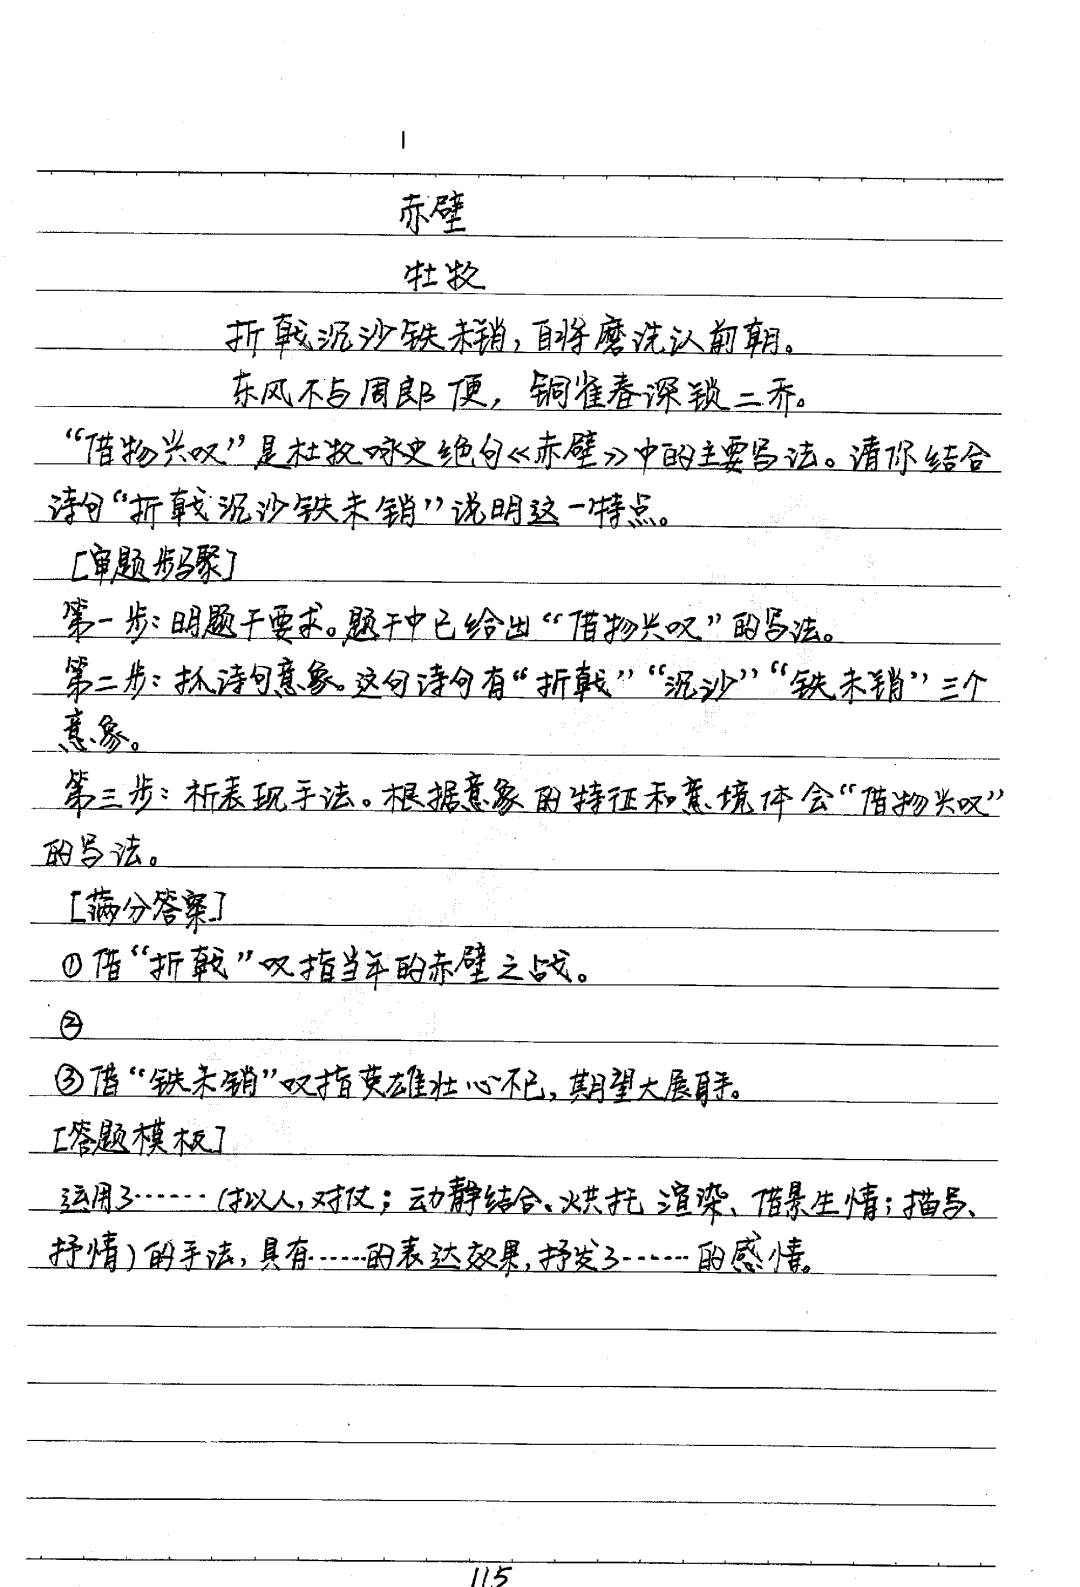 1
赤壁
杜牧
折戟沉沙铁未销,自将磨洗认前朝。
东风不与周郎便,铜雀春深锁二乔。
“借物兴叹”是杜牧咏史绝句《赤壁》中的主要写法。请你结合
诗句“折戟沉沙铁未销”说明这一特点。
[审题步骤]
第一步:明题干要求。题干中已给出“借物兴叹”的写法。
第二步:抓诗句意象。这句诗句有“折戟”“沉沙”“铁未销”三个
意象。
第三步:析表现手法。根据意象的特征和意境体会“借物兴叹”
的写法。
[满分答案]
①借“折戟”叹指当年的赤壁之战。
②
③借“铁未销”叹指英雄壮心不已,期望大展身手。
[答题模板]
运用了……(拟人,对仗;动静结合、烘托、渲染、借景生情;描写、
抒情)的手法,具有……的表达效果,抒发了……的感情。
115